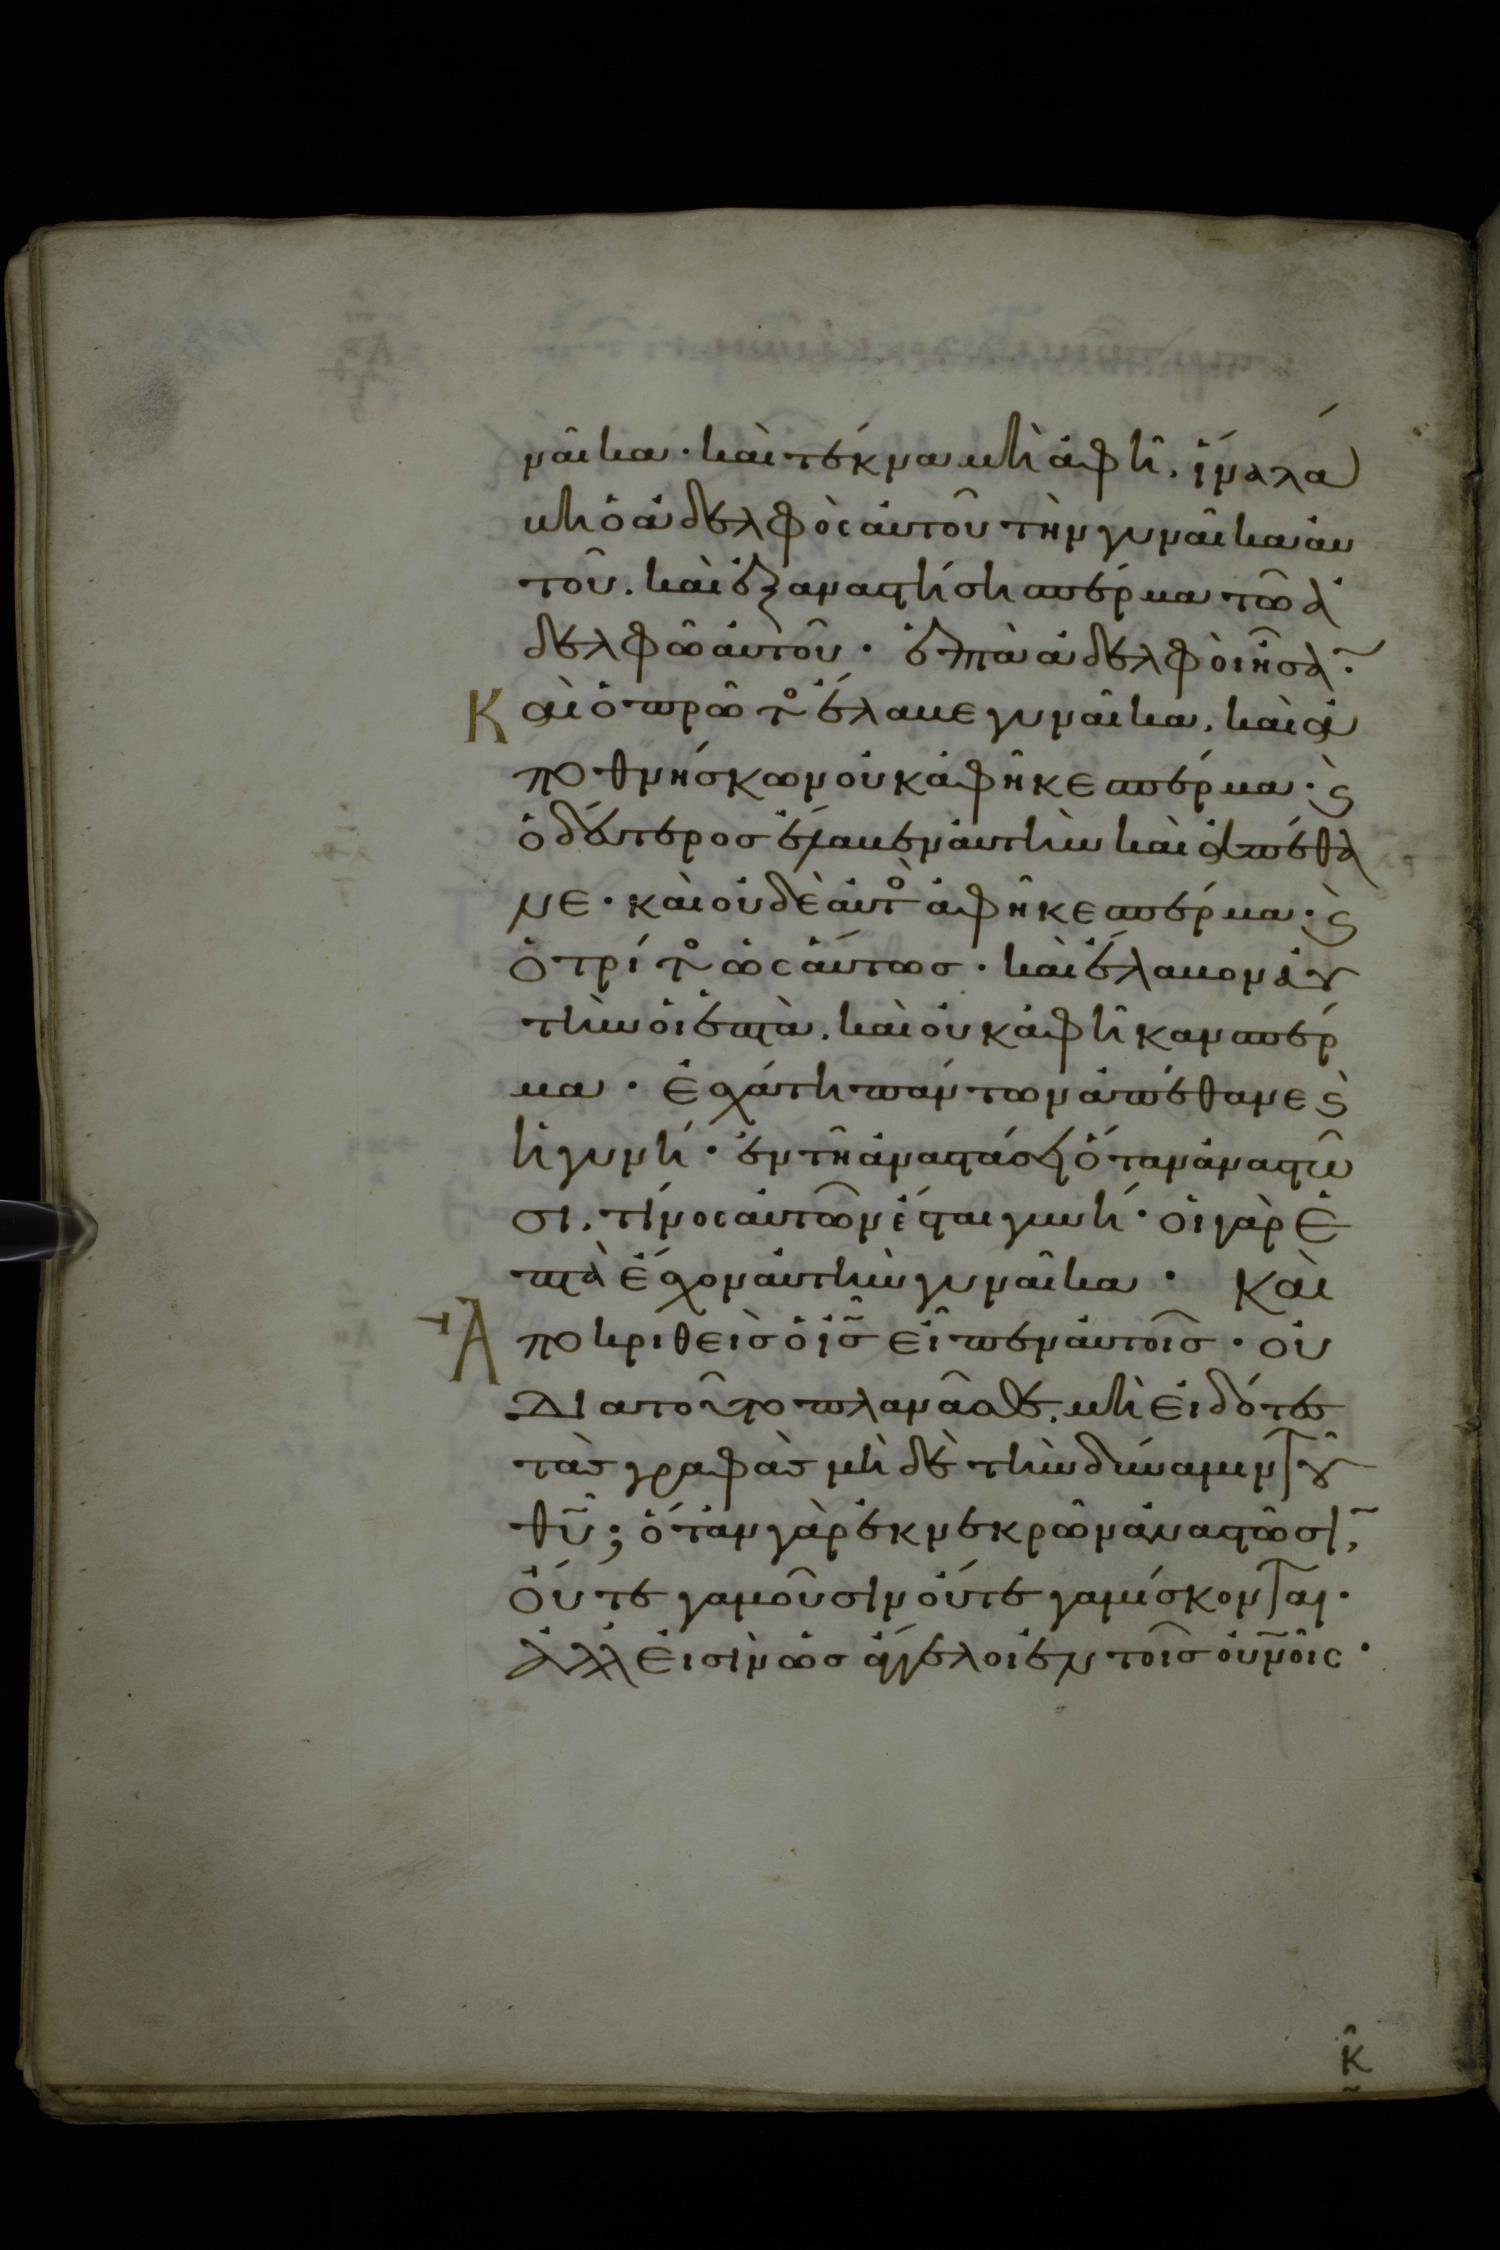 ναῖκα· καὶ τέκνα μὴ ἀφῆ. ἵνα λά
βη ὁ ἀδελφὸς αὐτοῦ τὴν γυναῖκα αὐ
τοῦ. καὶ ἐξαναστήση σπέρμα τῶ ἀ
δελφῶ αὐτοῦ· ἑπτὰ ἀδελφοὶ ἦσα̃.
Καὶ ὁ πρῶτος ἔλαβε γυναῖκα. καὶ ἀ
ποθνήσκων οὐκ ἀφῆκε σπέρμα· ϛ̀
ὁ δεύτερος ἔλαβεν αὐτὴν καὶ ἀπέθα
νε· καὶ οὐδὲ αὐτὸς ἀφῆκε σπέρμα· ϛ̀
ὁ τρίτος ὡς αὕτως· καὶ ἔλαβον αὐ
τὴν οἱ ἑπτὰ. καὶ οὐκ ἀφῆκαν σπέρ
μα· ἐσχάτη πάντων ἀπέθανε ϛ̀
ἡ γυνή· ἐν τῆ ἀναστάσει ὅταν ἀναστῶ
σι, τίνος αὐτῶν ἔσται γυνή· οἱ γὰρ ἑ
πτὰ ἔσχον αὐτὴν γυναῖκα· Καὶ
Ἀποκριθεὶς ὁ ις̃ εἶπεν αὐτοῖς· οὐ
Διατοῦτο πλανᾶσθε, μὴ εἰδότες
τὰς γραφὰς μὴ δὲ τὴν δύναμιν τοῦ
θυ̃; ὅταν γὰρ ἐκ νεκρῶν ἀναστῶσι̃,
Οὔτε γαμοῦσιν οὔτε γαμίσκονται·
ἀλλ εἰσὶν ὡς ἄγγελοι ἐν τοῖς οὐν̃οῖς·
κ̂